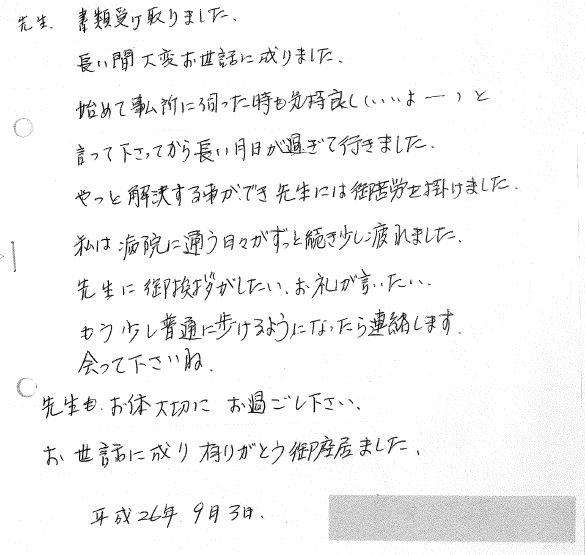 先生、書類受け取りました。
長い間大変お世話に成りました。
始めて事ム所に伺った時も気持良し(いいよー)と
言って下さってから長い月日が過ぎて行きました。
やっと解決する事ができ先生には御苦労を掛けました。
私は病院に通う日々がずっと続き少し疲れました。
先生に御挨拶がしたい、お礼が言いたい、
もう少し普通に歩けるようになったら連絡します。
会って下さいね。
先生もお体大切にお過ごし下さい。
お世話に成り有りがとう御座居ました。
平成26年9月3日、